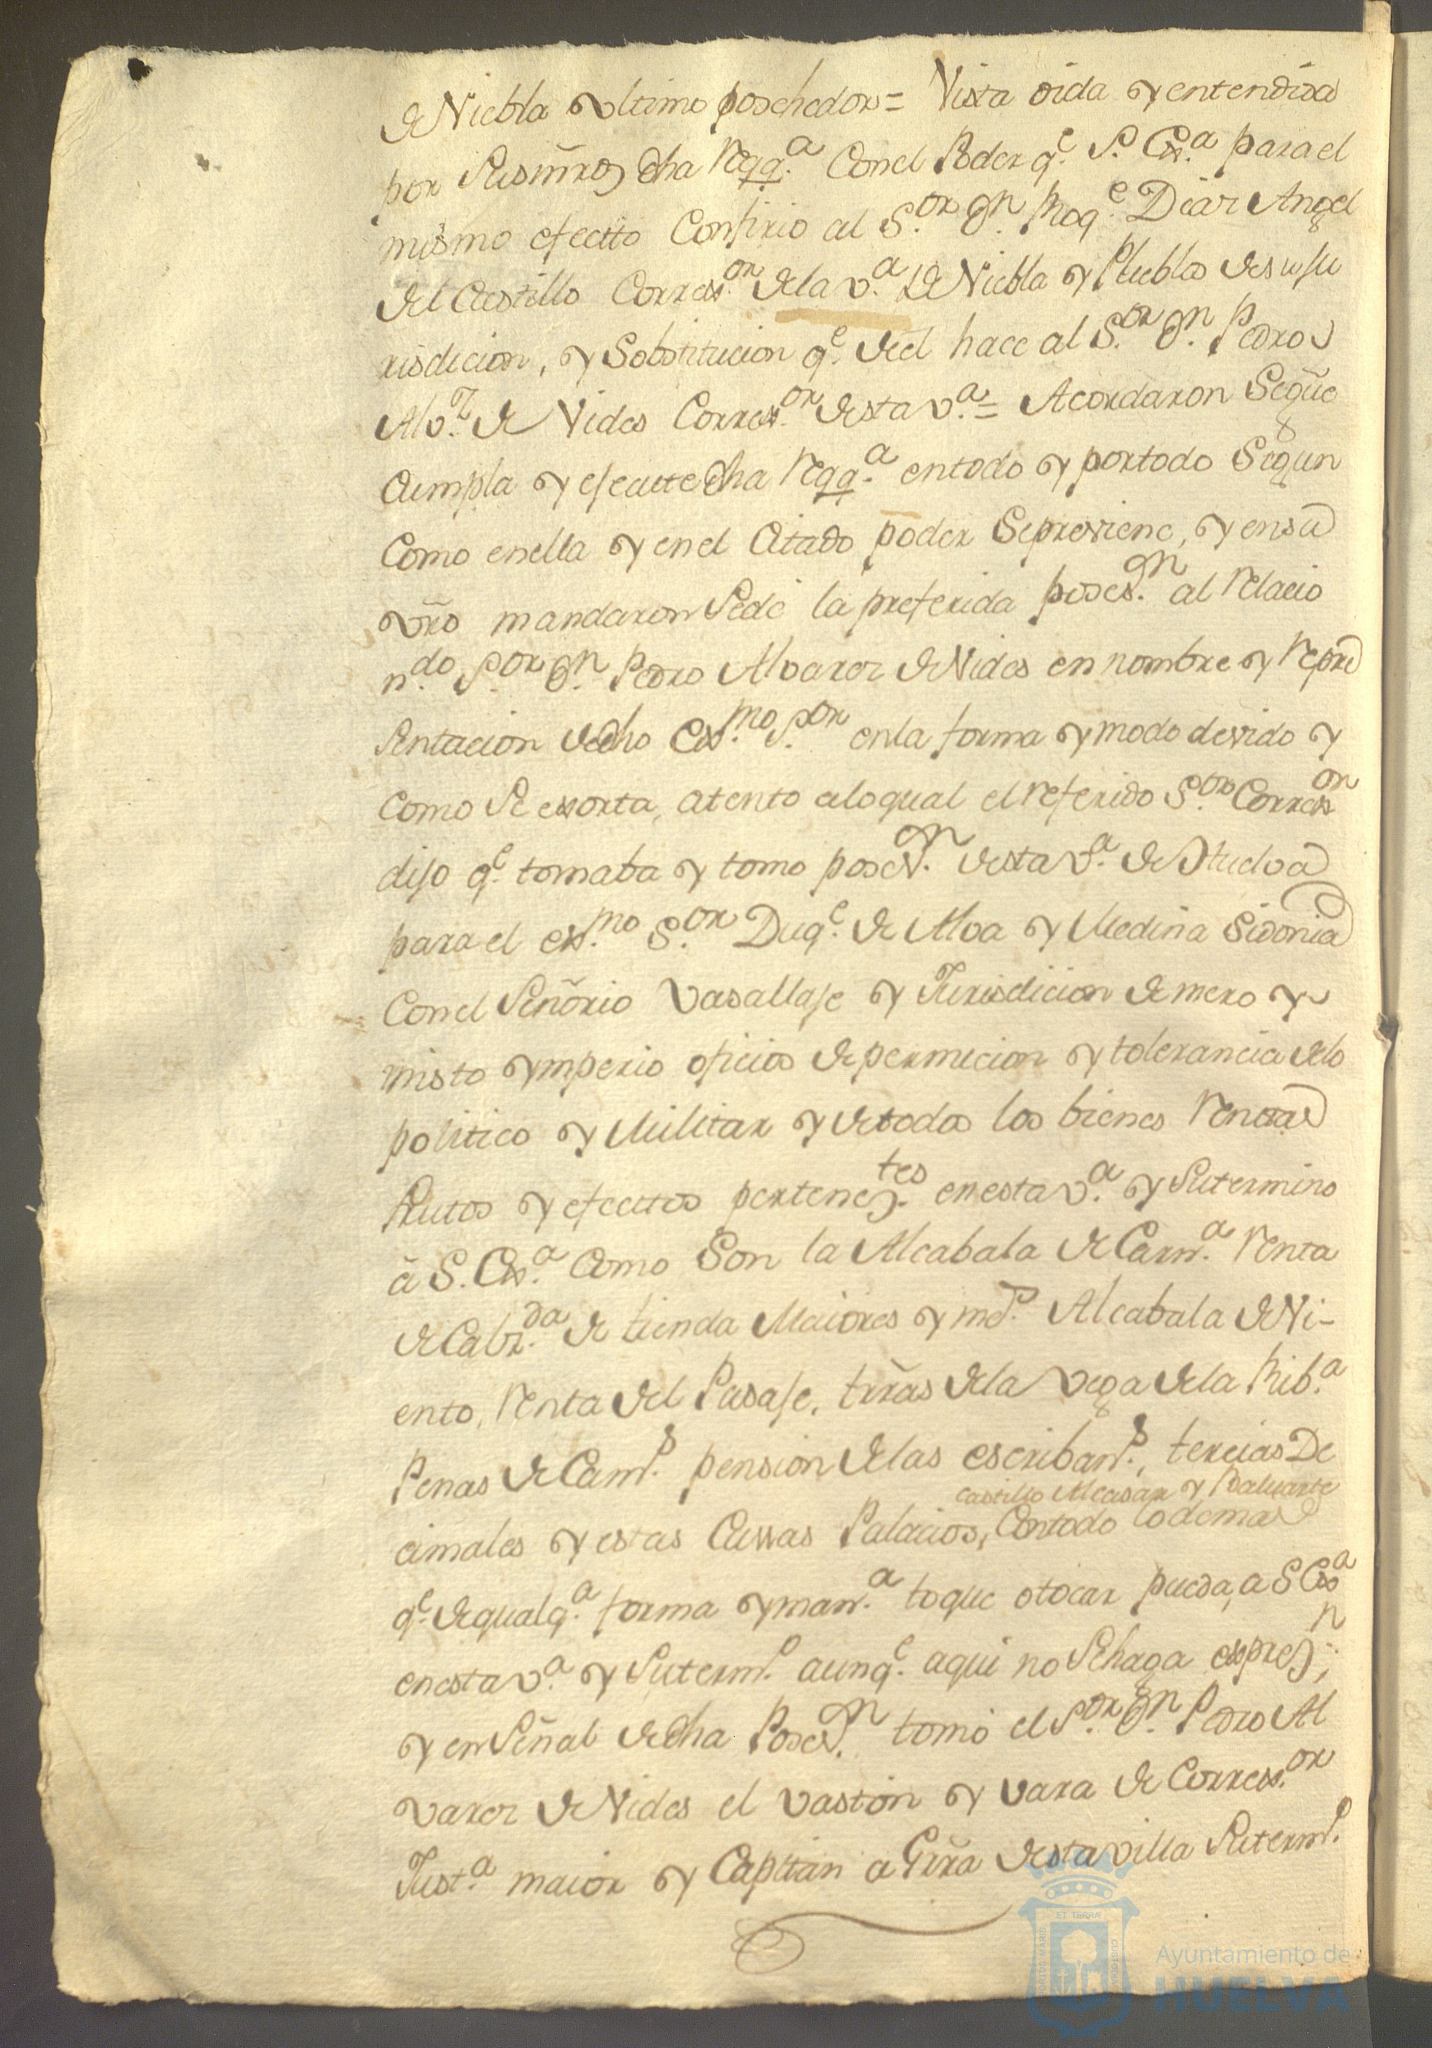 de Niebla ultimo posehedor = Vista oida y entendida
por Susmr̃s dha reqq.ª con el Poder q.e S. Ex.ª para el
mismo efectto confirio al S.or D.n Roq.e Diaz Angel
del Castillo Corres.or dela v.ª de Niebla y Pueblos desu ju
risdicion, y sobstitucion q.e deel hace al S.or D.n Pedro
Alv.z de Vides Corres.or desta v.ª = Acordaron Segũe
cumpla y efecutte dha reqq.ª entodo y portodo Segun
Como enella y enel citado poder Sepreviene, y ensu
vr̃o mandaron Sedé la preferida poses.on al relacio
n.do S.or D.n Pedro Alvarez de Vides en nombre y repre
sentacion dedho Ex.mo S.or enla forma y modo devido y
como Se exorta, atento aloqual el referido S.or Corres.or
dijo q.e tomaba y tomo poses.on desta v.ª de Huelva
para el ex.mo S.or Duq.e de Alva y Medina Sidonia
Conel Señorio vasallaje y Jurisdicion de mero y
misto ymperio oficios de permicion y tolerancia delo
politico y Militar y de todos los bienes rentas
frutos y efecttos pertenez.tes enesta v.ª y Sutermino
á S. Ex.ª como Son la Alcabala de Carn.ª renta
de Calz.da de tienda Maiores y m.s Alcabala de Vi-
ento, renta del Pasaje, tirr̃as dela Vega dela Rib.ª
Penas de Cam.s pension delas escriban.s, tercias De
castillo Alcasar y Baluarte
cimales y estas Cassas Palacios, Contodo lodemas
q.e dequalq.ª forma y man.ª toque o tocar pueda, a S Ex.ª
enesta v.ª y Suterm.o aunq.e aqui no Sehaga expres.n;
y en Señal dedha Poses.on tomó el S.or D.n Pedro Al
varez de Vides el vastón y vara de Corres.or
Just.ª maior y Capitan a Grr̃a desta villa Suterm.o
Ayuntamiento de
HUELVA